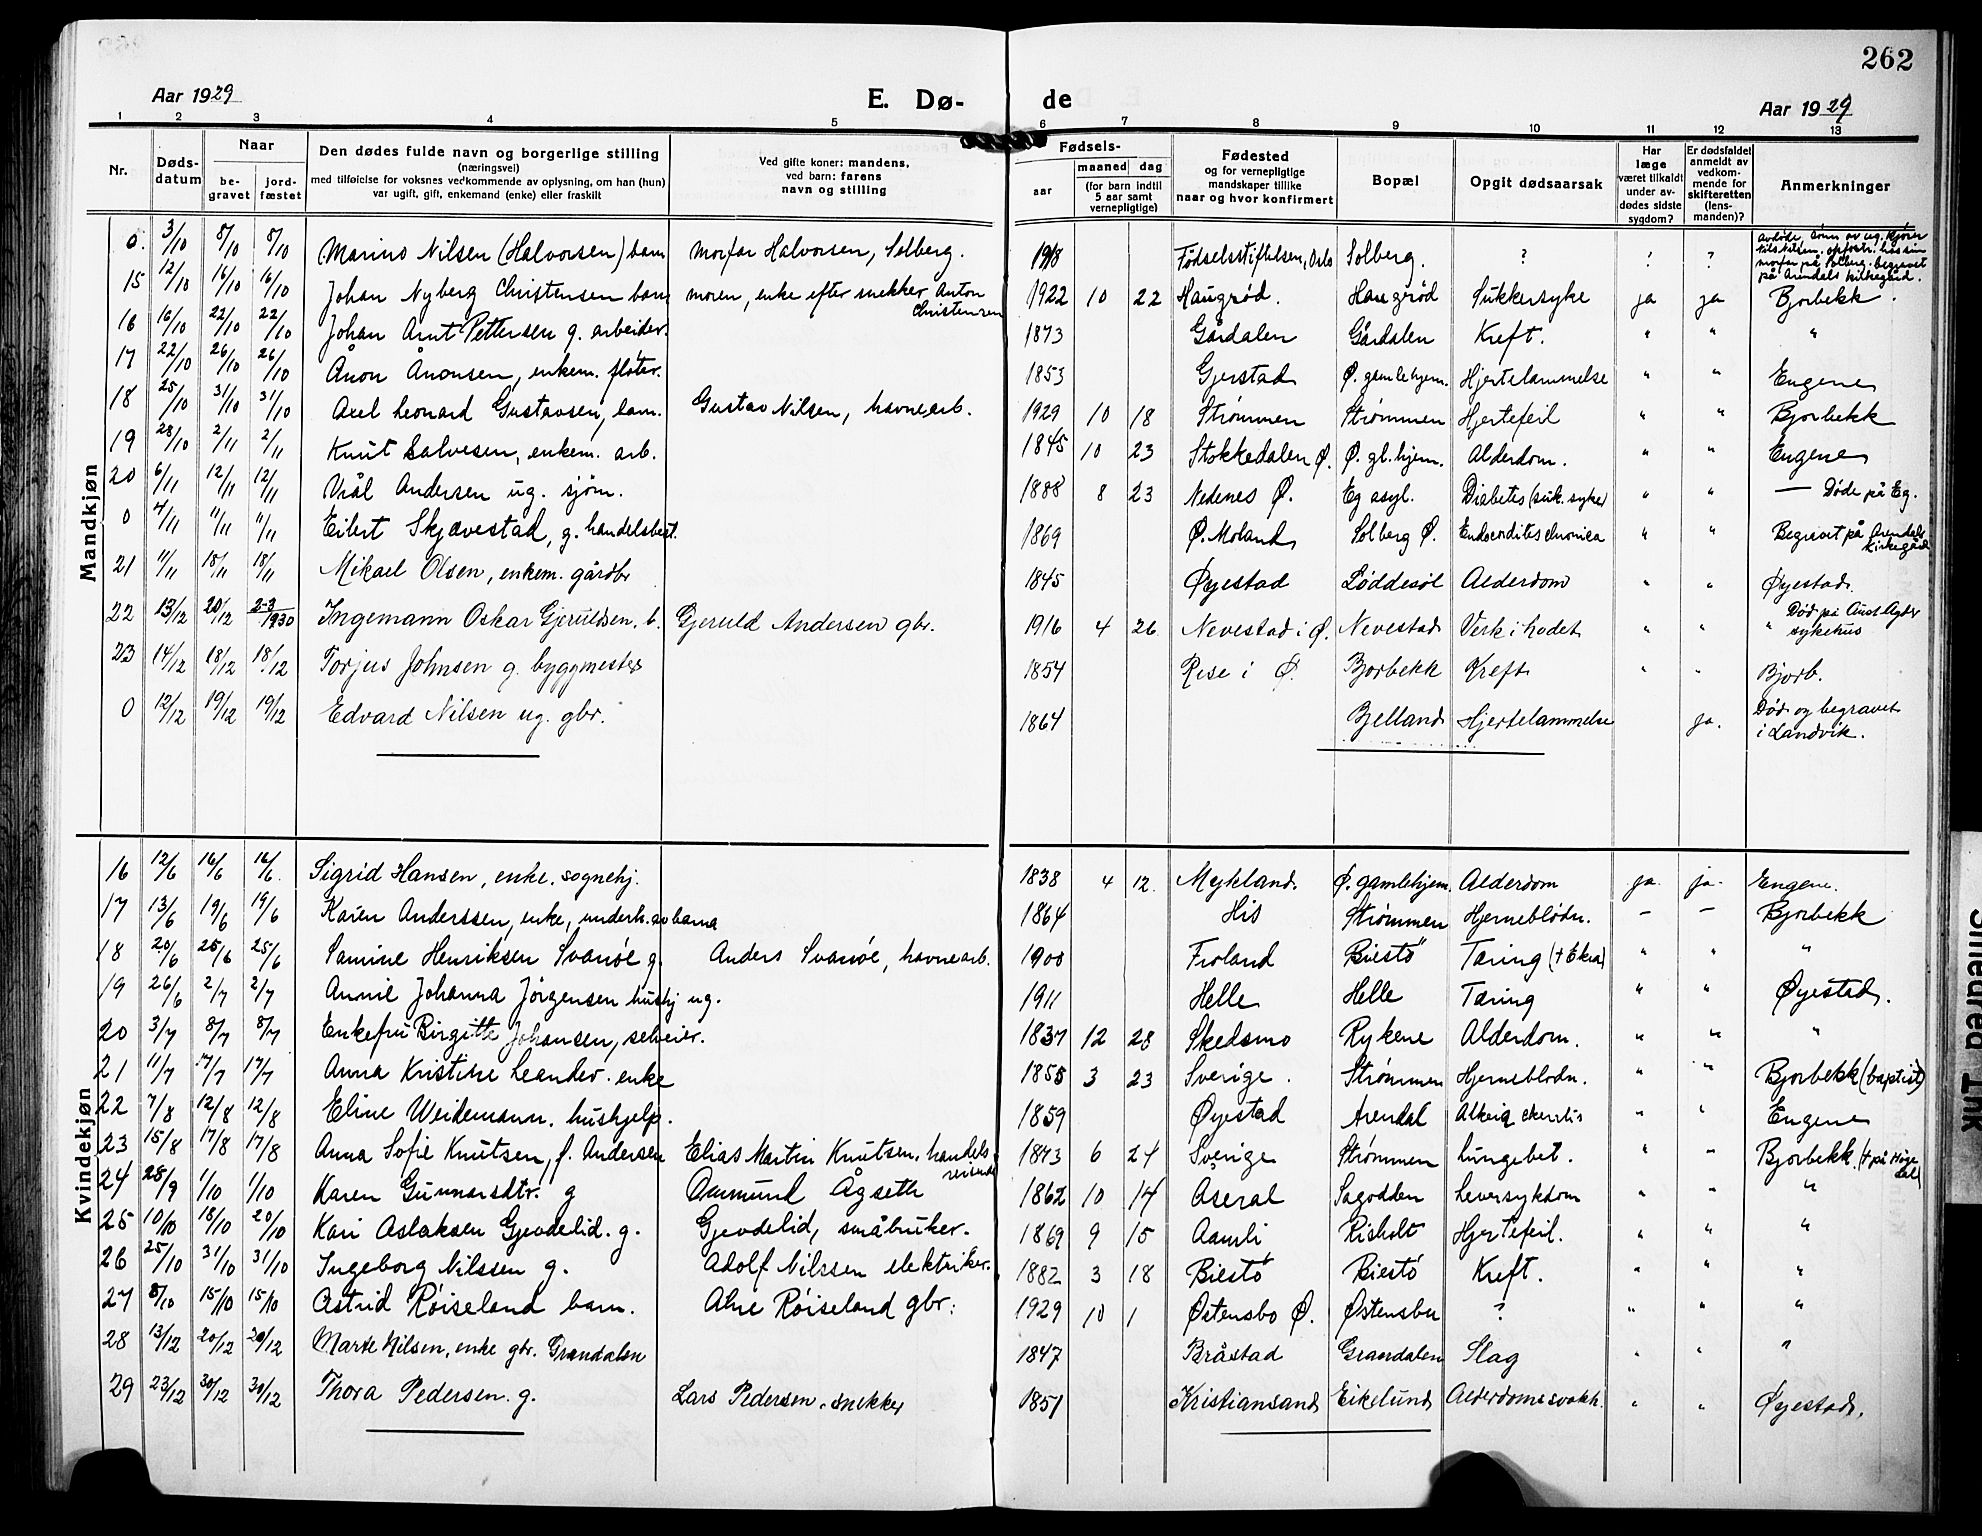 262
Aar 1929
E. Dø-
de
Aar 1929
1 2 3 4 5 6 7 8 9 10 11 12 13
Nr. Døds-datum Naar be-gravet jord-fæstet Den dødes fulde navn og borgerlige stilling (næringsvei) med tilføielse for voksnes vedkommende av oplysning, om han (hun) var ugift, gift, enkemand (enke) eller fraskilt Ved gifte koner: mandens, ved barn: farens navn og stilling Fødsels- aar maaned dag (for barn indtil 5 aar samt vernepligtige) Fødested og for vernepligtige mandskaper tillike naar og hvor konfirmert Bopæl Opgit dødsaarsak Har læge været tilkaldt under av-dødes sidste sygdom? Er dødsfaldet anmeldt av vedkom-mende for skifteretten (lens-manden)? Anmerkninger
Mandkjøn
0. 3/10 8/10 8/10 Marino Nilsen (Halvorsen) barn morfar Halvorsen, Solberg. 1918 Fødselsstiftelsen, Oslo Solberg. ? ! ? morfar på Solberg. begravet på Arendals kirkegård.
15 12/10 16/10 16/10 Johan Nyberg Christensen barn moren, enke efter snekker Anton Christensen 1922 10 22 Haugrød. Haugrød Sukkersyke ja ja Bjorbekk.
16 16/10 22/10 22/10 Johan Arnt Pettersen g. arbeider. 1873 Gårdalen Gårdalen Kreft. " " "
17 22/10 26/10 26/10 Ånon Ånonsen, enkem. fløter. 1853 Gjerstad Ø. gamlehjem. Hjertelammelse " " Engene
18 25/10 31/10 31/10 Axel Leonard Gustavsen, barn. Gustav Nilsen, havnearb. 1929 10 18 Strømmen Strømmen Hjertefeil " " Bjorbekk
19 28/10 2/11 2/11 Knut Salvesen, enkem. arb. 1845 10 23 Stokkedalen Ø. Ø. gl.hjem. Alderdom. " " Engene
20 6/11 12/11 12/11 Vrål Andersen ug. sjøm. 1888 8 23 Nedenes Ø. Eg asyl. Diabetes (suk. syke) " " — Døde på Eg.
0 4/11 11/11 11/11 Eilert Skjævestad, g. handelsbest. 1869 Ø. Moland Solberg Ø. Endocarditis chronica " " Begravet på Arendals Kirkegård
21 11/11 18/11 18/11 Mikael Olsen, enkem. gårdbr 1845 Øyestad Løddesøl Alderdom " " Øyestad.
22 13/12 20/12 2-3/1930 Ingemann Oskar Gjeruldsen. b. Gjeruld Andersen gbr. 1916 4 26 Nevestad i Ø. Nevestad Verk i hodet " " " Død på Aust Agder sykehus
23 14/12 18/12 18/12 Torjus Johnsen g. byggmester 1854 Rise i Ø. Bjorbekk Kreft " " Bjorb.
0 12/12 19/12 19/12 Edvard Nilsen ug. gbr. 1864 Bjelland Hjertelammelse ja. Død og begravet i Landvik.
Kvindekjøn
16 12/6 16/6 16/6. Sigrid Hansen, enke. sognehj. 1838 4 12. Mykland. Ø. gamlehjem. Alderdom ja. ja. Engene.
17 13/6 19/6 19/6 Karen Anderssen, enke, underh. av barna 1864 His Strømmen Hjerneblødn. — — Bjorbekk
18 20/6 25/6 25/6 Samine Henriksen Svanøe g. Anders Svanøe, havnearb. 1900 Froland Biestø Tæring (+ Ekra) " " "
19 26/6 2/7 2/7 Annie Johanna Jörgensen hushj ug. 1911 Helle Helle Tæring " " Øyestad.
20 3/7 8/7 8/7 Enkefru Birgitte Johansen, selveier. 1837 12 28 Skedsmo Rykene Alderdom. " " "
21 11/7 17/7 17/7 Anna Kristine Leander. enke 1855 3 23 Sverige. Strømmen Hjerneblødn. " " Bjorbekk (baptist)
22 7/8 12/8 12/8 Eline Weidemann. hushjelp. 1859 Øyestad Arendal " " Engene
23 15/8 17/8 17/8 Anna Sofie Knutsen, f. Andersen Elias Martin Knutsen, handels reisende 1873 6 24 Sverige Strømmen Lungebet. " " Bjorbekk. (+ på Høgedal)
24 28/9 1/10 1/10 Karen Gunnarsdtr. g Aamund Ågseth 1862 10 14 Aseral Sagodden Leversykdom " " "
25 10/10 18/10 20/10 Kari Aslaksen Gjevdelid. g. Gjevdelid, småbruker. 1869 9 15 Aamli Risholt Hjertefeil. " " "
26 25/10 31/10 31/10 Ingeborg Nilssen g. Adolf Nilssen elektriker. 1882 3 18 Biestø Biestø Kreft. " " "
27 8/10 15/10 15/10 Astrid Røiseland barn. Alve Røiseland gbr: 1929 10 1 Østensbo Ø. Østensbu ? " " "
28 13/12 20/12 20/12 Marte Nilsen, enke gbr. Grandalen 1847 Bråstad Grandalen Slag " " "
29 23/12 30/12 30/12 Thora Pedersen. g. Lars Pedersen, snekker 1851 Kristiansand Eikelund Alderdomssvakh. " " Øyestad.